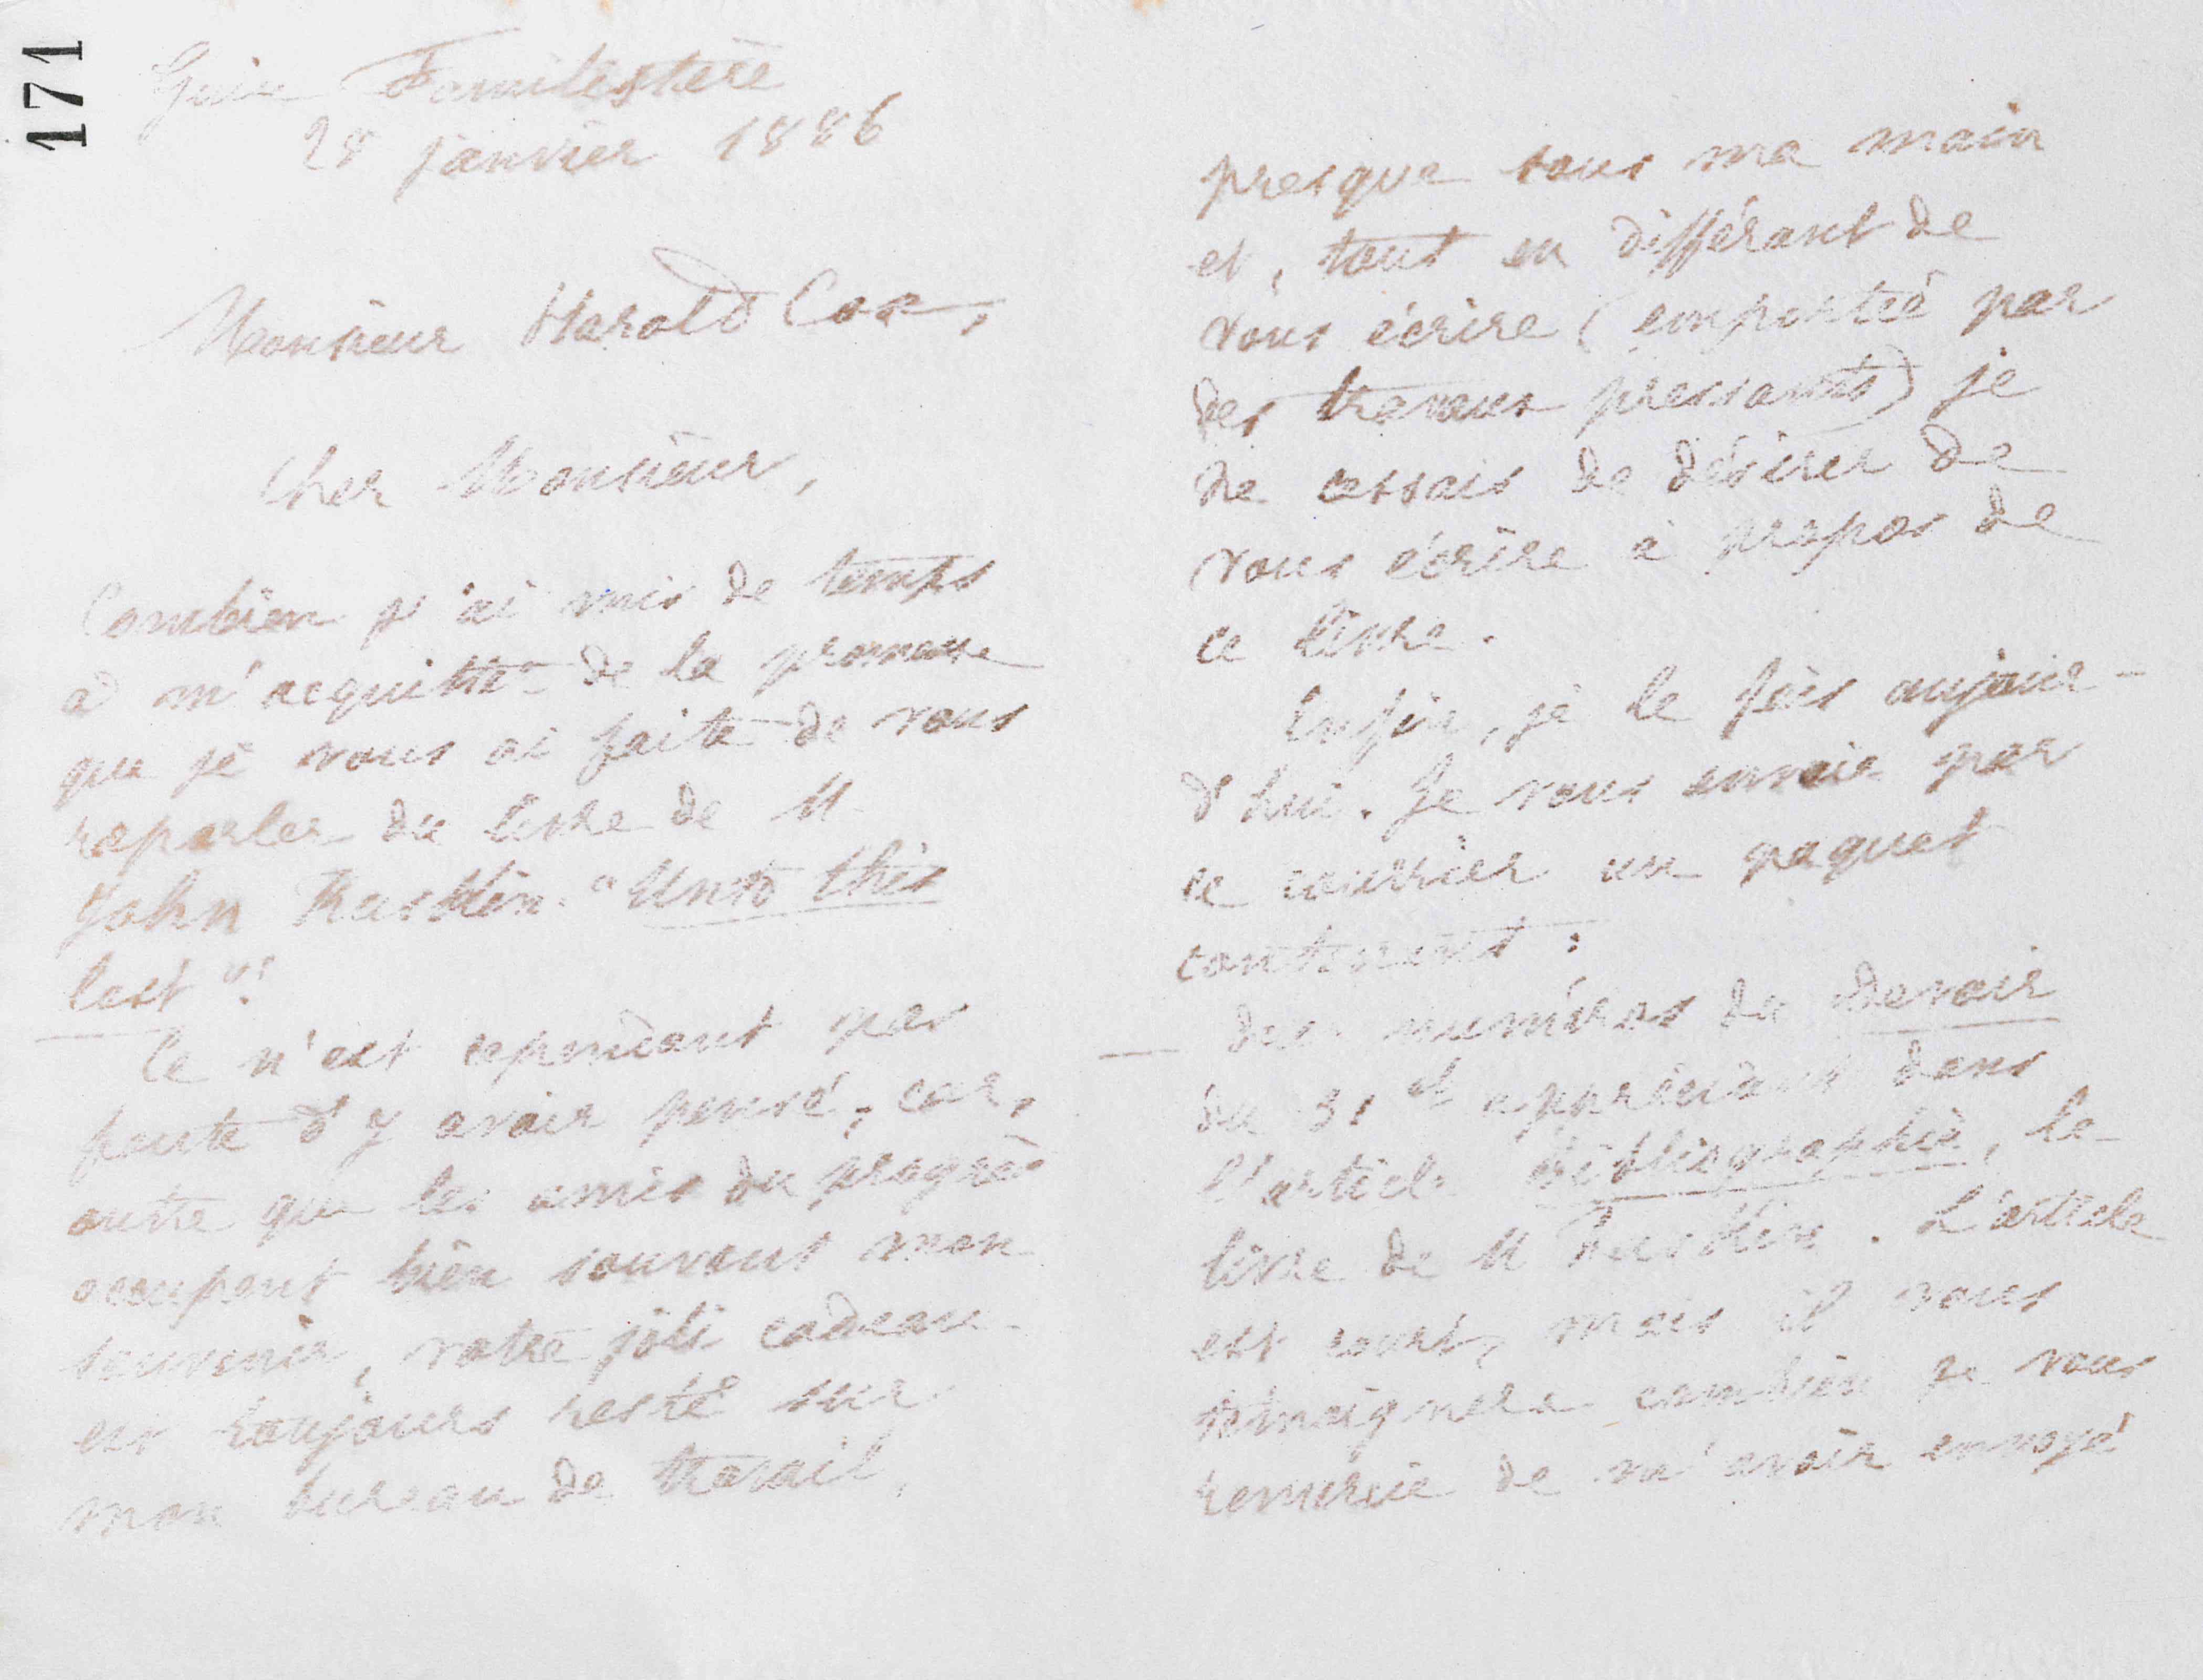 171
Guise Familistère
28 janvier 1886
Monsieur Harold Cox,
Cher Monsieur,
Combien j'ai mis de temps
à m'acquitter de la promesse
que je vous ai faite de vous
reparler du livre de M.
John Ruskin "Unto this
last"!
Ce n'est cependant pas
faute d'y avoir pensé, car,
outre que les amis du progrès
occupent bien souvent mon
souvenir, votre joli cadeau
est toujours resté sur
mon bureau de travail,
presque sous ma main
et, tout en différant de
vous écrire (emportée par
des travaux pressants) je
ne cessais de désirer de
vous écrire à propos de
ce livre.
Enfin, je le fais aujour-
d'hui. Je vous envoie par
ce courrier un paquet
contenant :
— des numéros du Devoir
du 31 et appréciant dans
l'article Bibliographie, le
livre de M Ruskin. L'article
est court, mais il vous
témoignera combien je vous
remercie de m'avoir envoyé